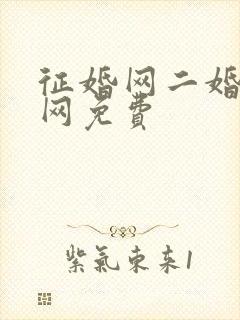 征婚网二婚
网免费
紫氣東来1